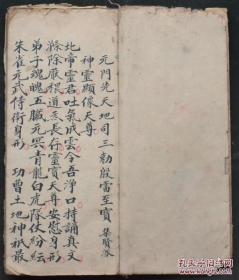 元門先天地司三勅殷雷至寶 集賢
神靈顯像天尊
北帝靈君吐氣成雲令吾淨口持誦真文
滌除厭穢道炁長存靈寶天尊安慰身形
弟子魂魄五臟元冥青龍白虎隊仗紛紜
朱雀元武侍衛身形 功曹土地神祇最